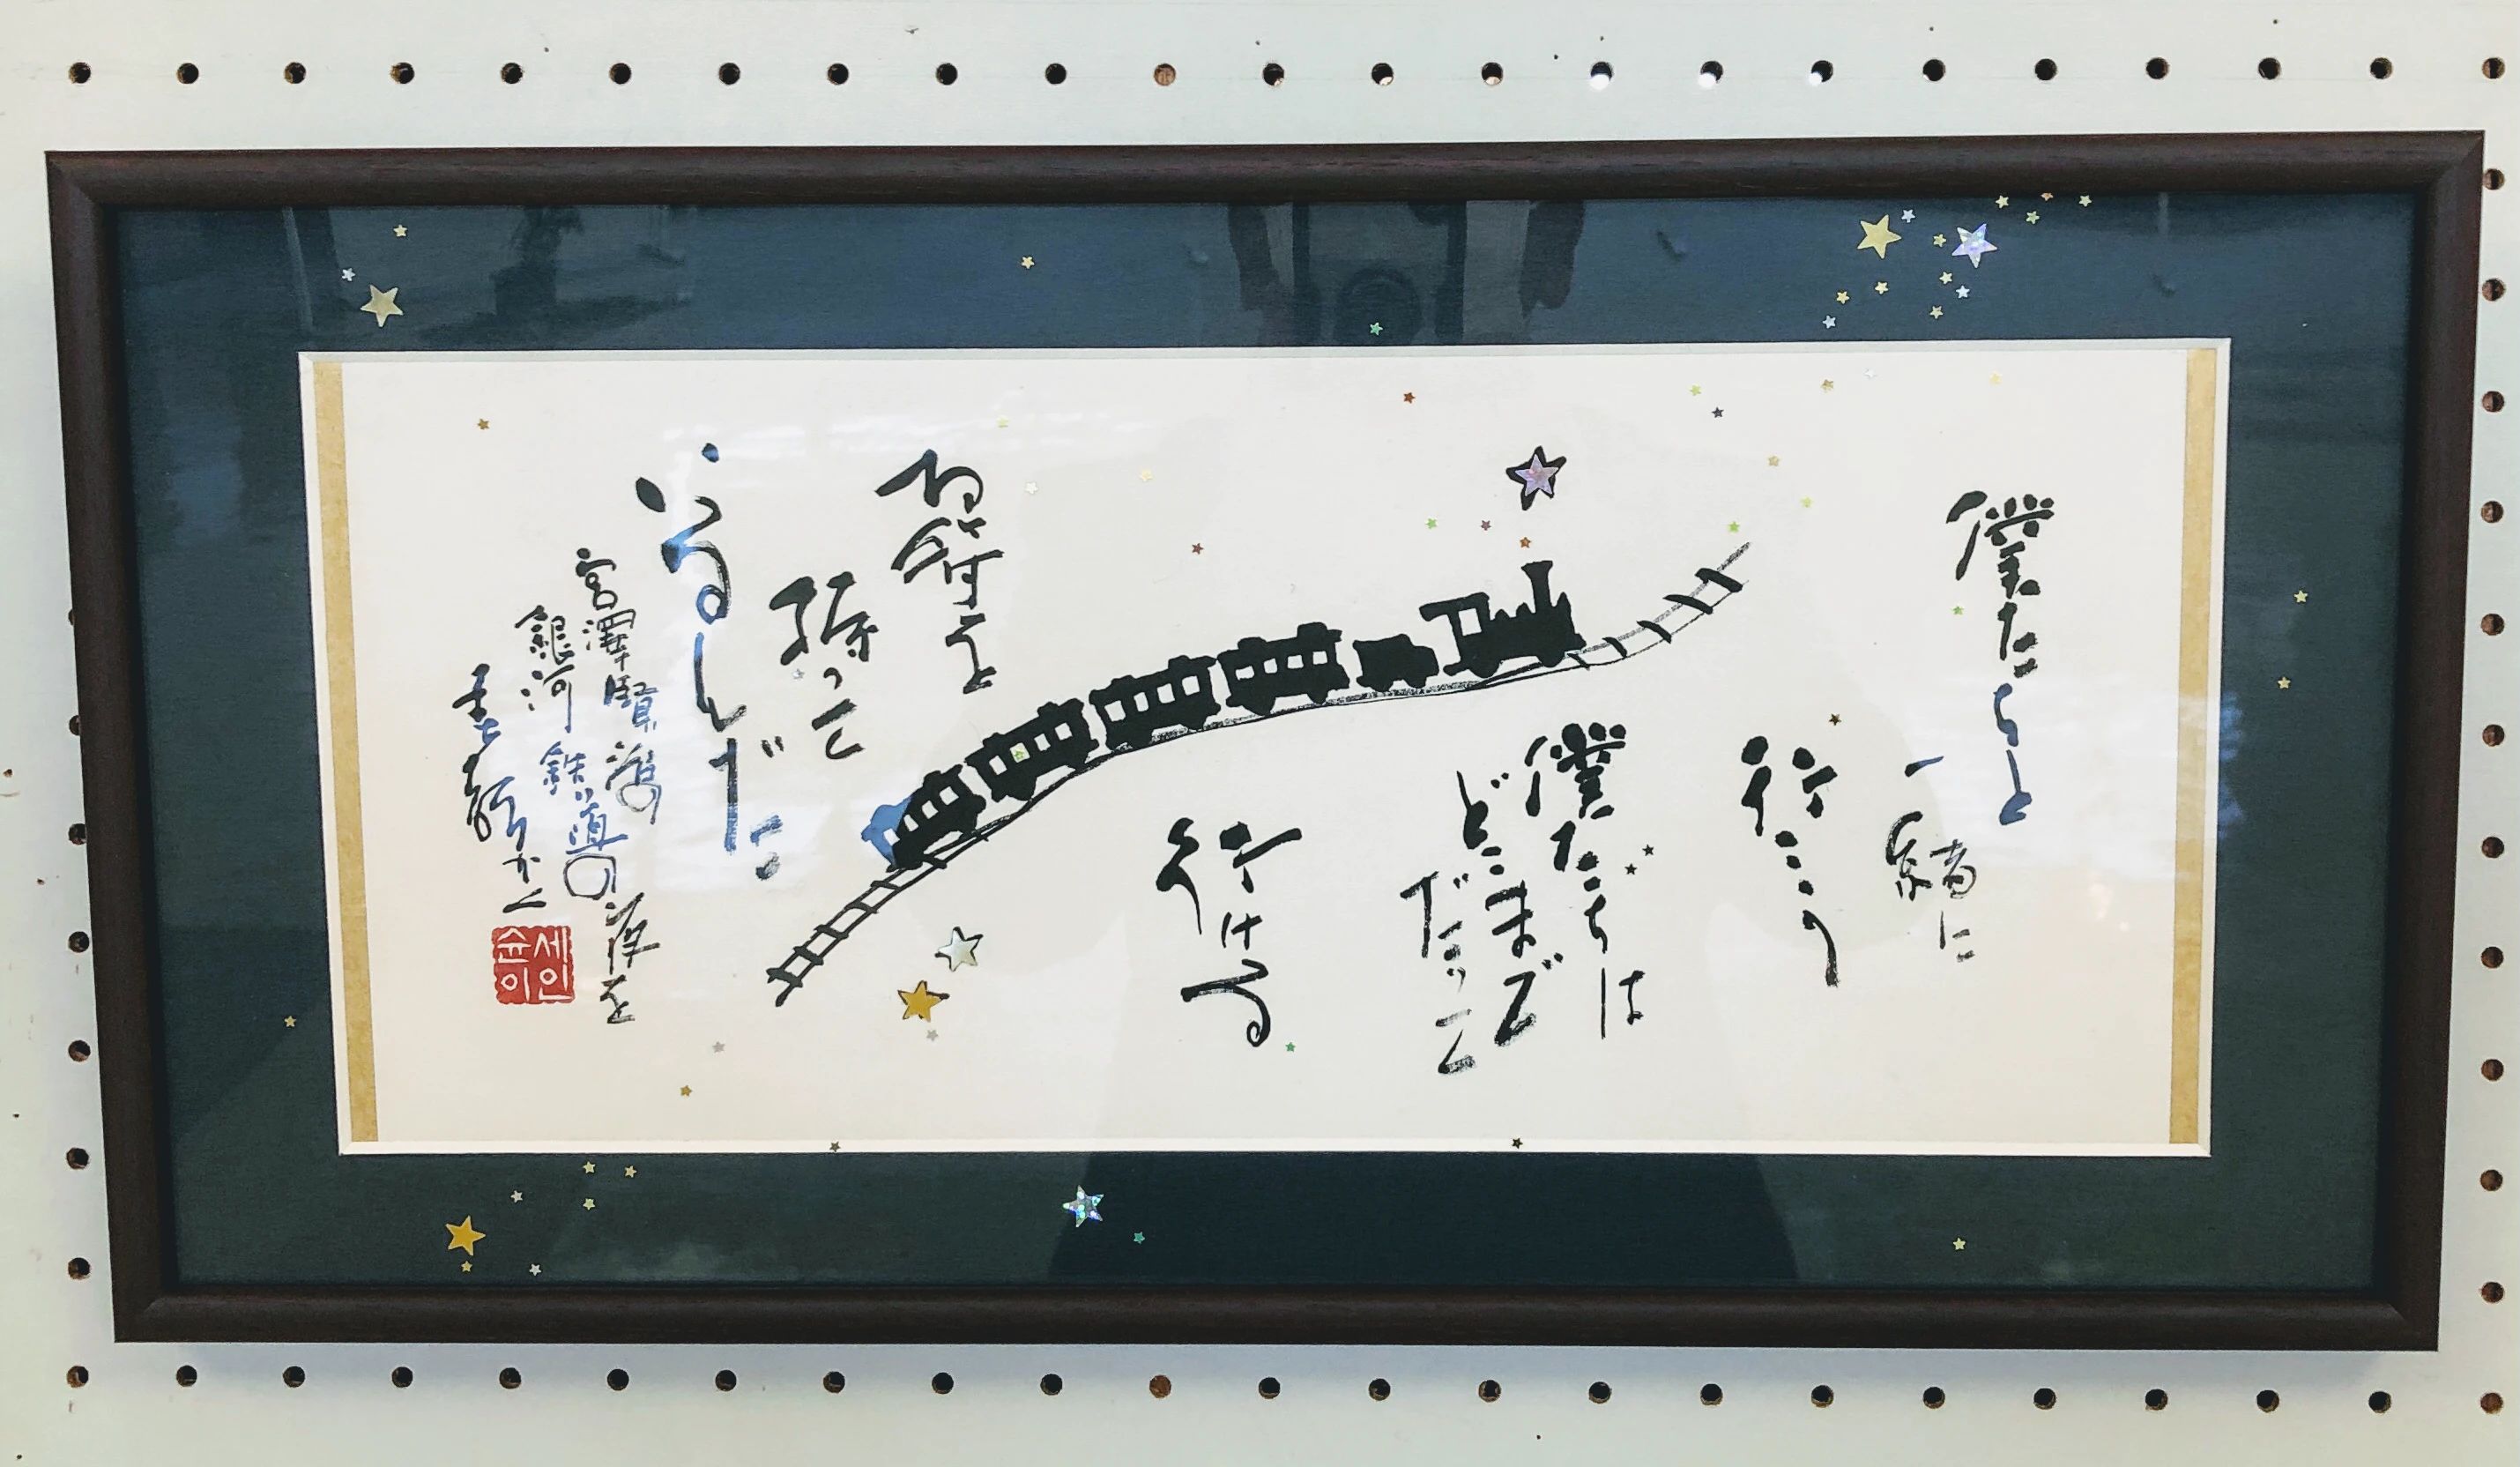 僕たちと
一緒に
行こう
僕たちは
どこまで
だって
行ける
切符を
持って
いるんだ
宮澤賢治の
銀河鉄道の夜を
かく
세인
슌이